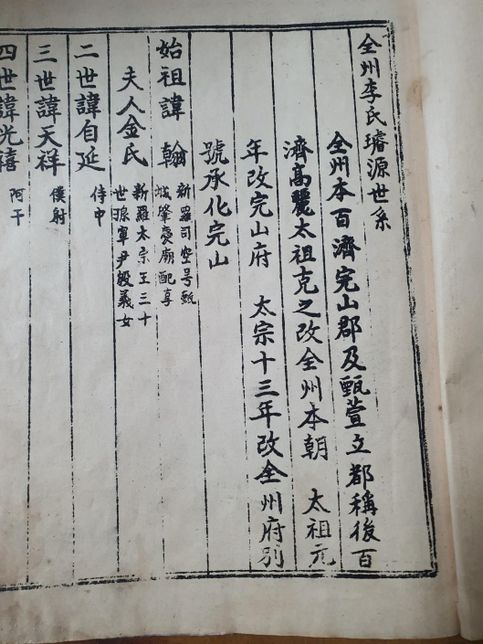 全州李氏璿源世系
全州本百濟完山郡及甄萱立都稱後百
濟高麗太祖克之改全州本朝 太祖元
年改完山府 太宗十三年改全州府別
號承化完山
始祖諱 翰
新羅司空号甄
城肇慶廟配享
夫人金氏
新羅太宗王三十
世孫軍尹殷義女
二世諱自延 侍中
三世諱天祥 僕射
四世諱光禧 阿干